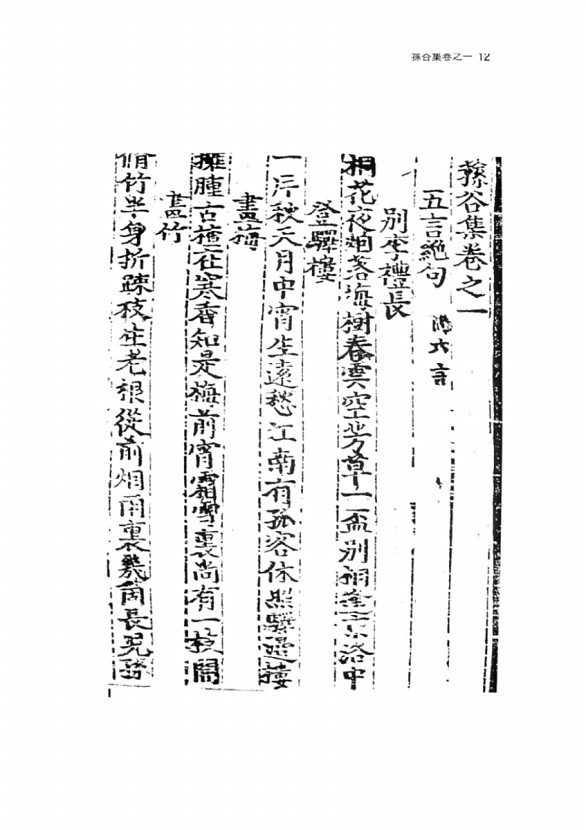 孫谷集卷之一 12
蓀谷集卷之一
五言絶句 附六言
別李禮長
桐花夜烟落海樹春雲空芳草一盃別相逢京洛中
登驛樓
一片秋天月中宵生遠愁江南有孤客休照驛邊樓
畫梅
擁腫古槎在寒香知是梅前宵霜雪裏尚有一枝開
畫竹
脩竹半身折疎枝生老根從前烟雨裏幾箇長兒孫